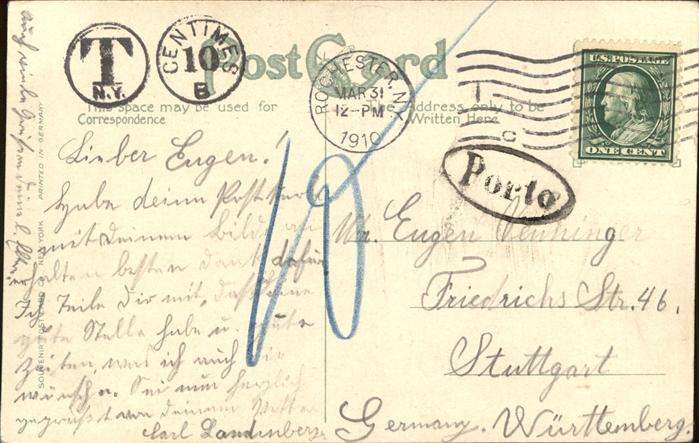 T
N.Y.
CENTIMES
10
B
Post Card
ROCHESTER, N.Y.
MAR 31
12-PM
1910
U.S. POSTAGE
ONE CENT
This space may be used for
Correspondence
The Address only to be
Written Here
Porto
10
Lieber Eugen!
Habe deine Postkarte
mit deinem Bild er
halten besten dank dafür
Ich Teile dir mit, daß ich eine
gute Stelle habe u. gute
Zeiten, was ich auch dir
wünsche. Sei nun herzlich
gegrüßt von deinem Vetter
Carl Landenberger
auch viele Grüße
Mr. Eugen
Friedrichs Str. 46.
Stuttgart
Germany. Württemberg.
SOUVENIR POST CARD CO. NEW YORK
PRINTED IN GERMANY